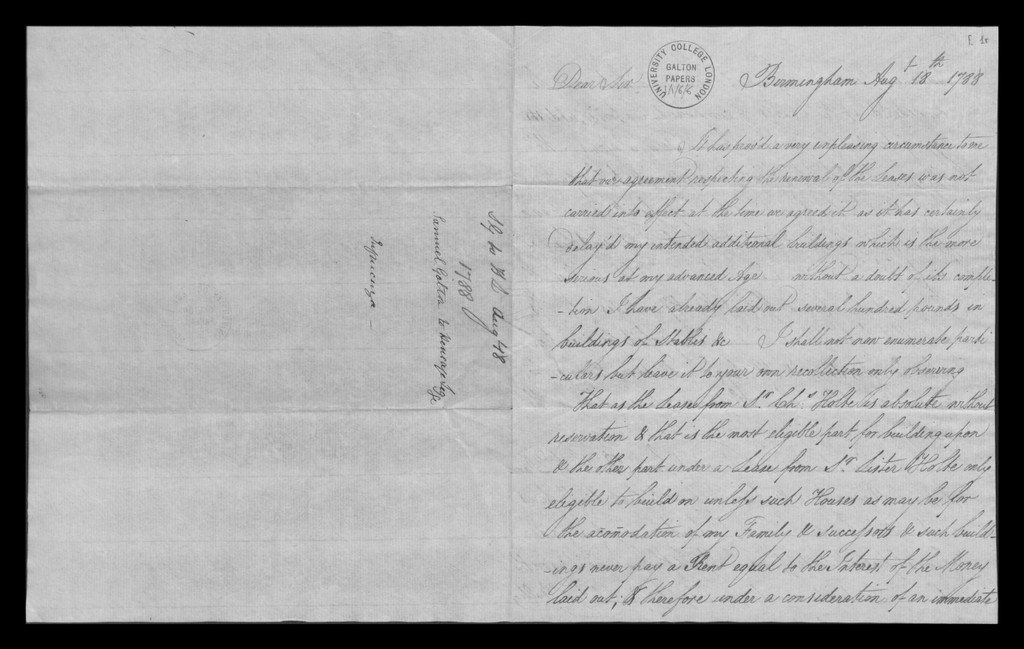 E 1r
UNIVERSITY COLLEGE LONDON
GALTON
PAPERS
Dear Sir
Birmingham Augt 18th 1788
It has prov'd a very unpleasing circumstance to me
that our agreement respecting the renewal of the leases was not
carried into effect at the time we agreed it as it has certainly
delay'd my intended additional buildings which is the more
serious at my advanced Age without a doubt of its comple-
-tion I have already laid out several hundred pounds in
buildings of Stables &c I shall not now enumerate parti
-culars but leave it to your own recollection only observing
That as the Lease from Sr Chs Holte is absolute without
reservation & that is the most eligible part for building upon
& the other part under a Lease from Sr Lister Holte only
eligible to build on unless such Houses as may be for
the acomodation of my Family & successors & such build-
-ings never pay a Rent equal to the Interest of the Money
laid out; & therefore under a consideration of an immediate
SG to HL Aug 18
1788
Samuel Galton to Heneage Legge